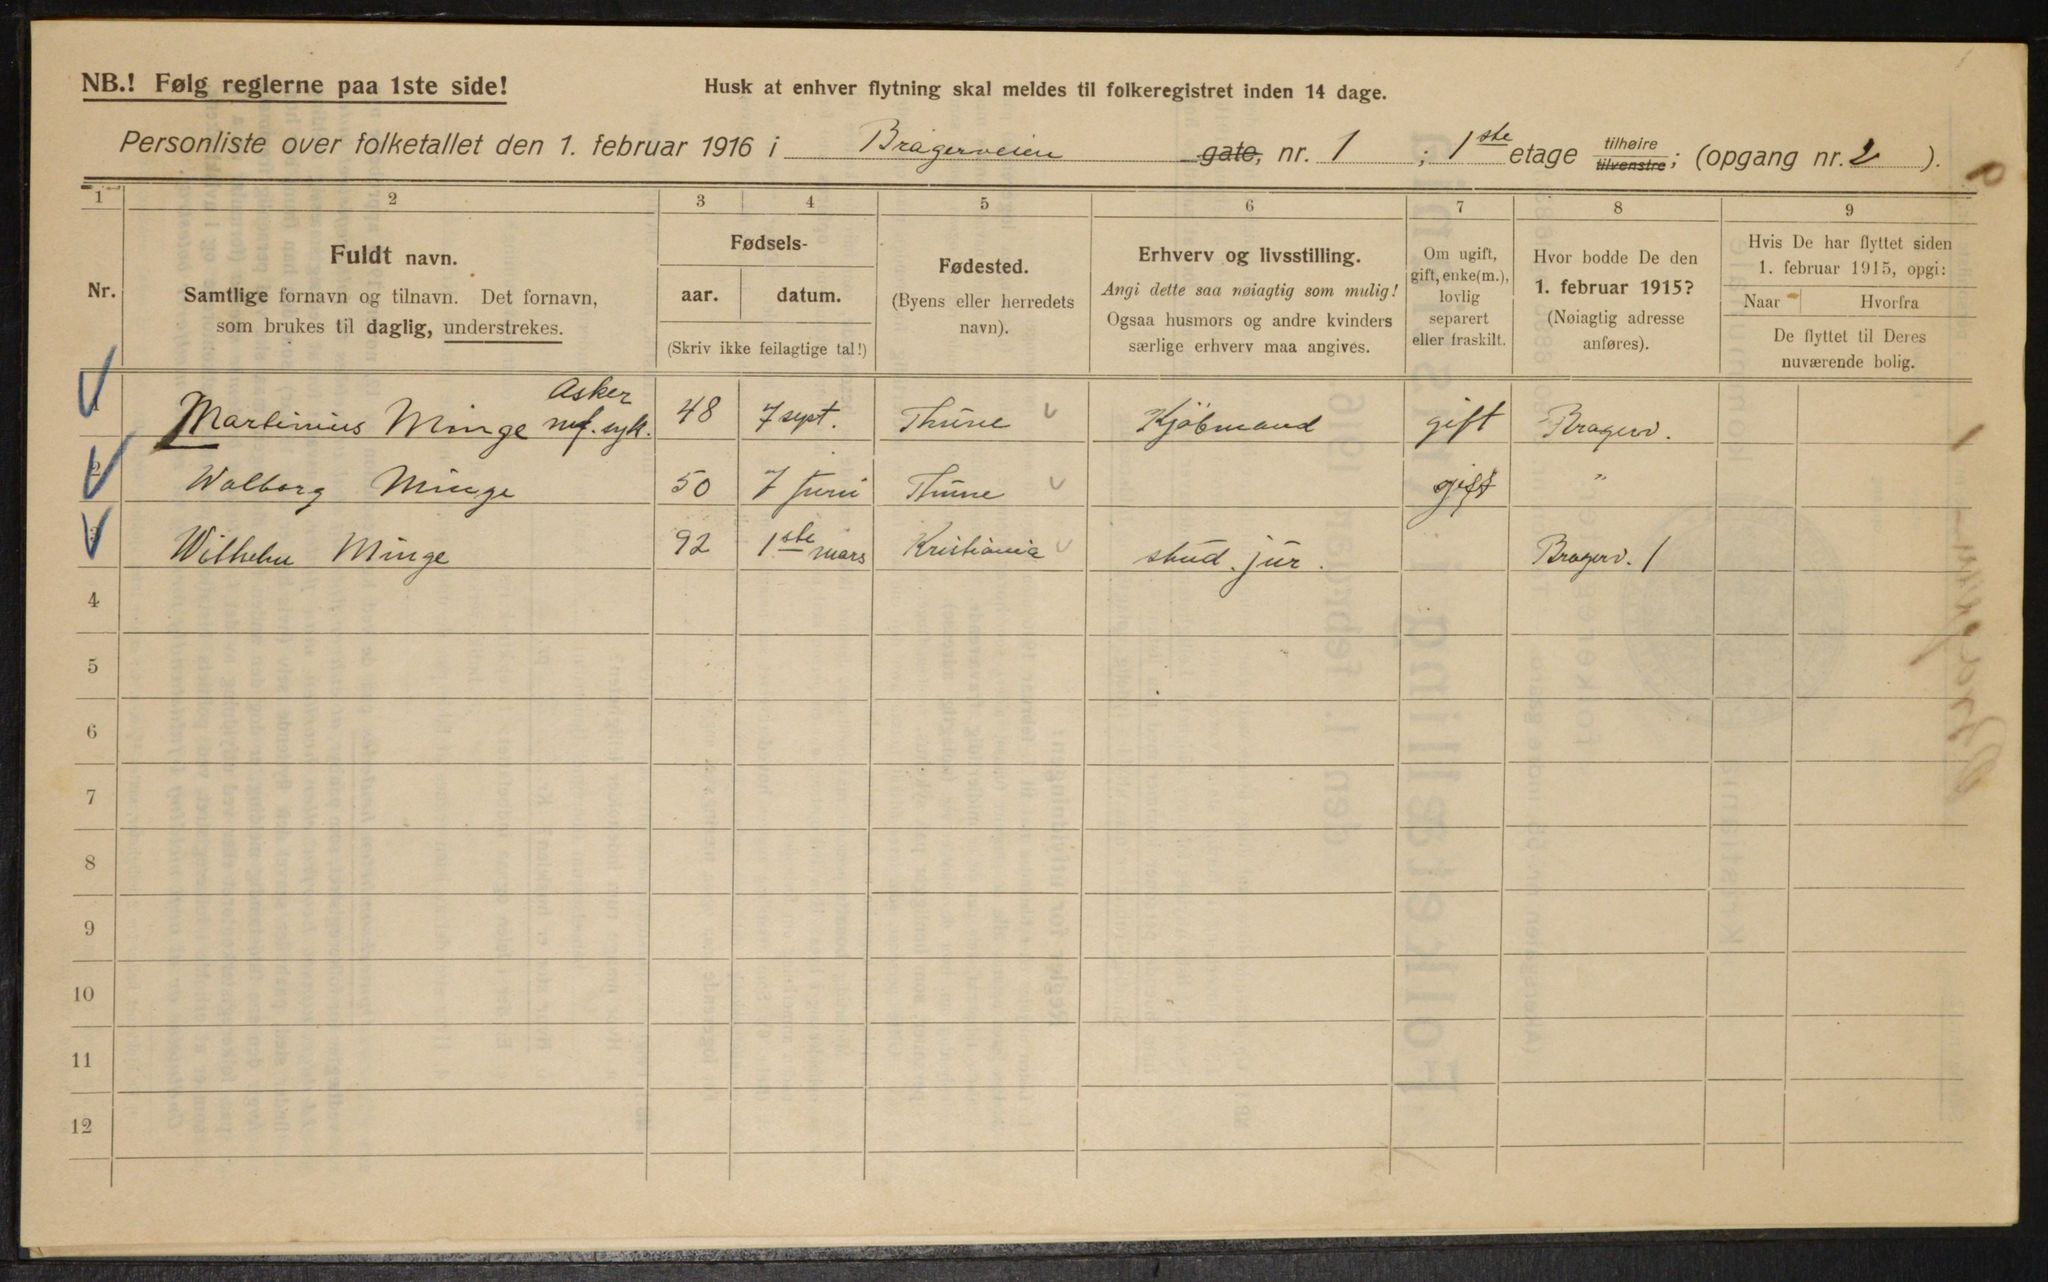 NB.! Følg reglerne paa 1ste side!
Husk at enhver flytning skal meldes til folkeregistret inden 14 dage.
Personliste over folketallet den 1. februar 1916 i Bragerveien gate, nr. 1 ; 1ste etage tilhøire tilvenstre; (opgang nr. 2 ).
1 2 3 4 5 6 7 8 9
Nr.
Fuldt navn.
Samtlige fornavn og tilnavn. Det fornavn,
som brukes til daglig, understrekes.
Fødsels-
aar. datum.
(Skriv ikke feilagtige tal!)
Fødested.
(Byens eller herredets
navn).
Erhverv og livsstilling.
Angi dette saa nøiagtig som mulig!
Ogsaa husmors og andre kvinders
særlige erhverv maa angives.
Om ugift,
gift, enke(m.),
lovlig
separert
eller fraskilt.
Hvor bodde De den
1. februar 1915?
(Nøiagtig adresse
anføres).
Hvis De har flyttet siden
1. februar 1915, opgi:
Naar Hvorfra
De flyttet til Deres
nuværende bolig.
Asker
1 Martinius Minge syk. 48 7 sept. Thune Kjöbmand gift Bragerv.
2 Walborg Minge 50 7 Juni Thune gift "
3 Wilhelm Minge 92 1ste mars Kristiania stud. jur. Bragerv. 1
4
5
6
7
8
9
10
11
12